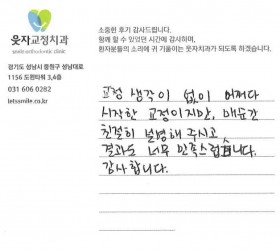 웃자교정치과
smile orthodontic clinic
경기도 성남시 중원구 성남대로
1156 도원타워 3,4층
031 606 0282
letssmile.co.kr
소중한 후기 감사드립니다.
함께 할 수 있었던 시간에 감사하며,
환자분들의 소리에 귀 기울이는 웃자치과가 되도록 하겠습니다.
교정 생각이 없이 어쩌다
시작한 교정이지만, 매순간
친절히 설명해 주시고
결과도 너무 만족스럽습니다.
감사합니다.